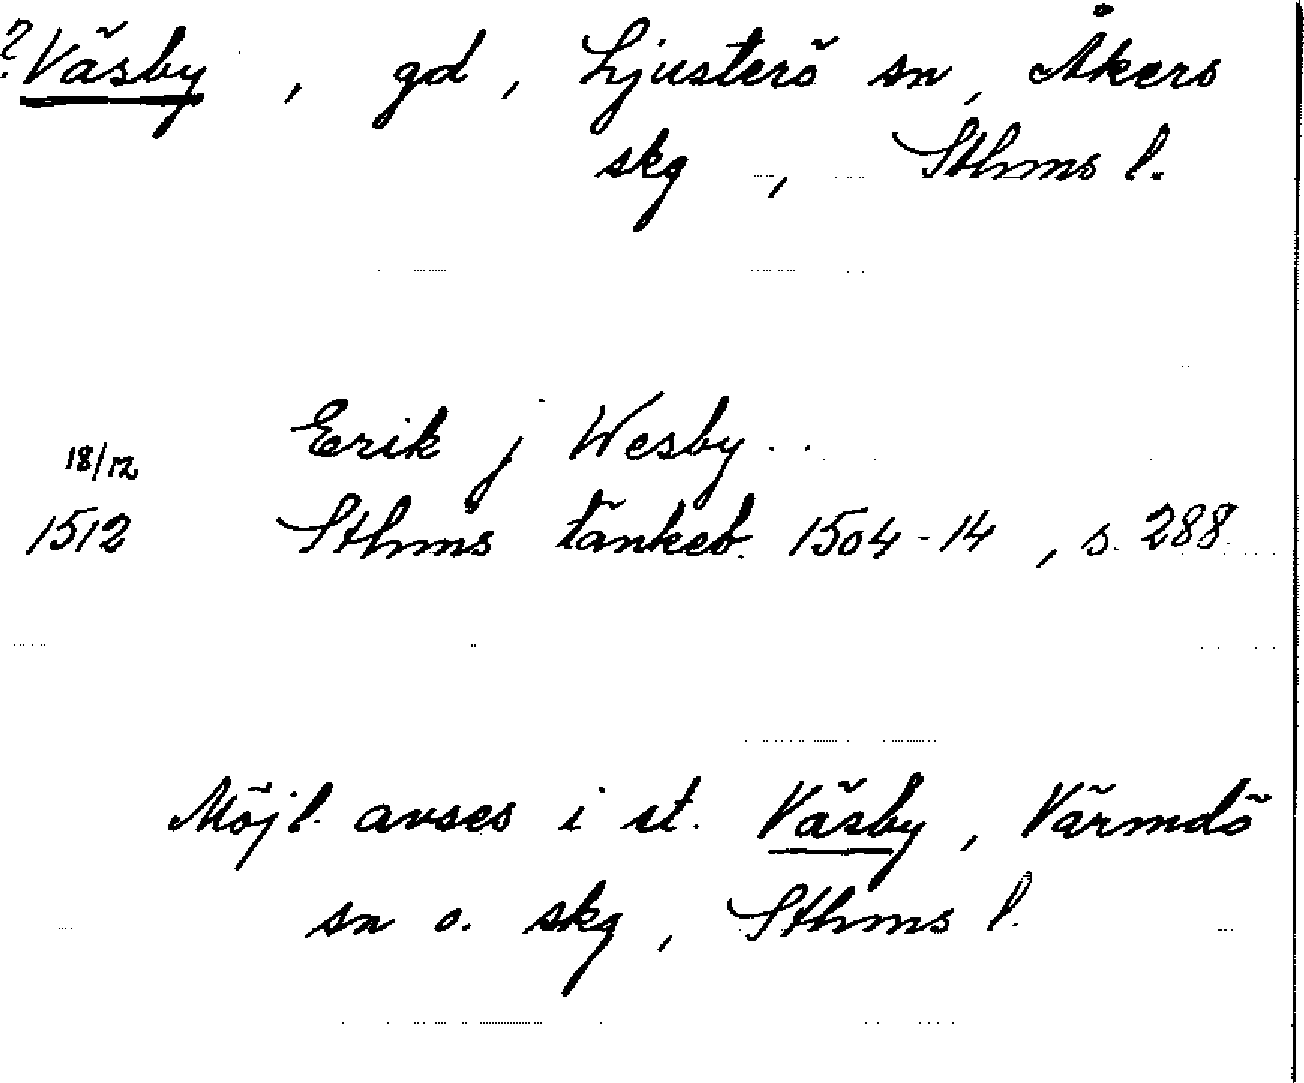 ? Väsby, gd, Ljusterö sn, Åkers
skg, Sthms l.
18/12 Erik j Wesby..
1512 Sthms tänkeb. 1504-14, s. 288
Möjl. avses i st. Väsby, Värmdö
sn o. skg, Sthms l.